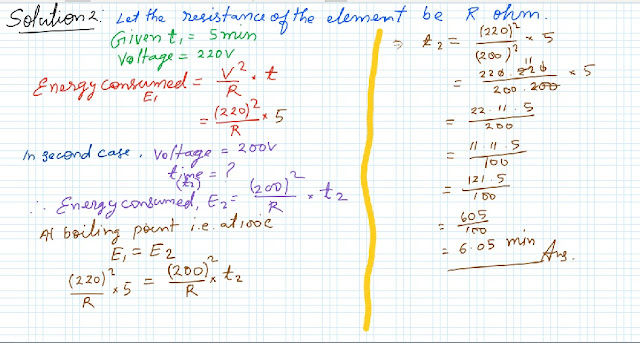 Solution 2: Let the resistance of the element be R ohm.
Given t₁ = 5 min
Voltage = 220V
Energy consumed = V²/R · t
E₁
= (220)²/R × 5
In second case, voltage = 200V
time = ?
(t₂)
∴ Energy consumed, E₂ = (200)²/R × t₂
At boiling point i.e. at 100°C
E₁ = E₂
(220)²/R × 5 = (200)²/R × t₂
⇒ t₂ = (220)²/(200)² × 5
= 220 · 220 11/200 · 200 × 5
= 22 · 11 · 5/200
= 11 · 11 · 5/100
= 121 · 5/100
= 605/100
= 6.05 min Ans.